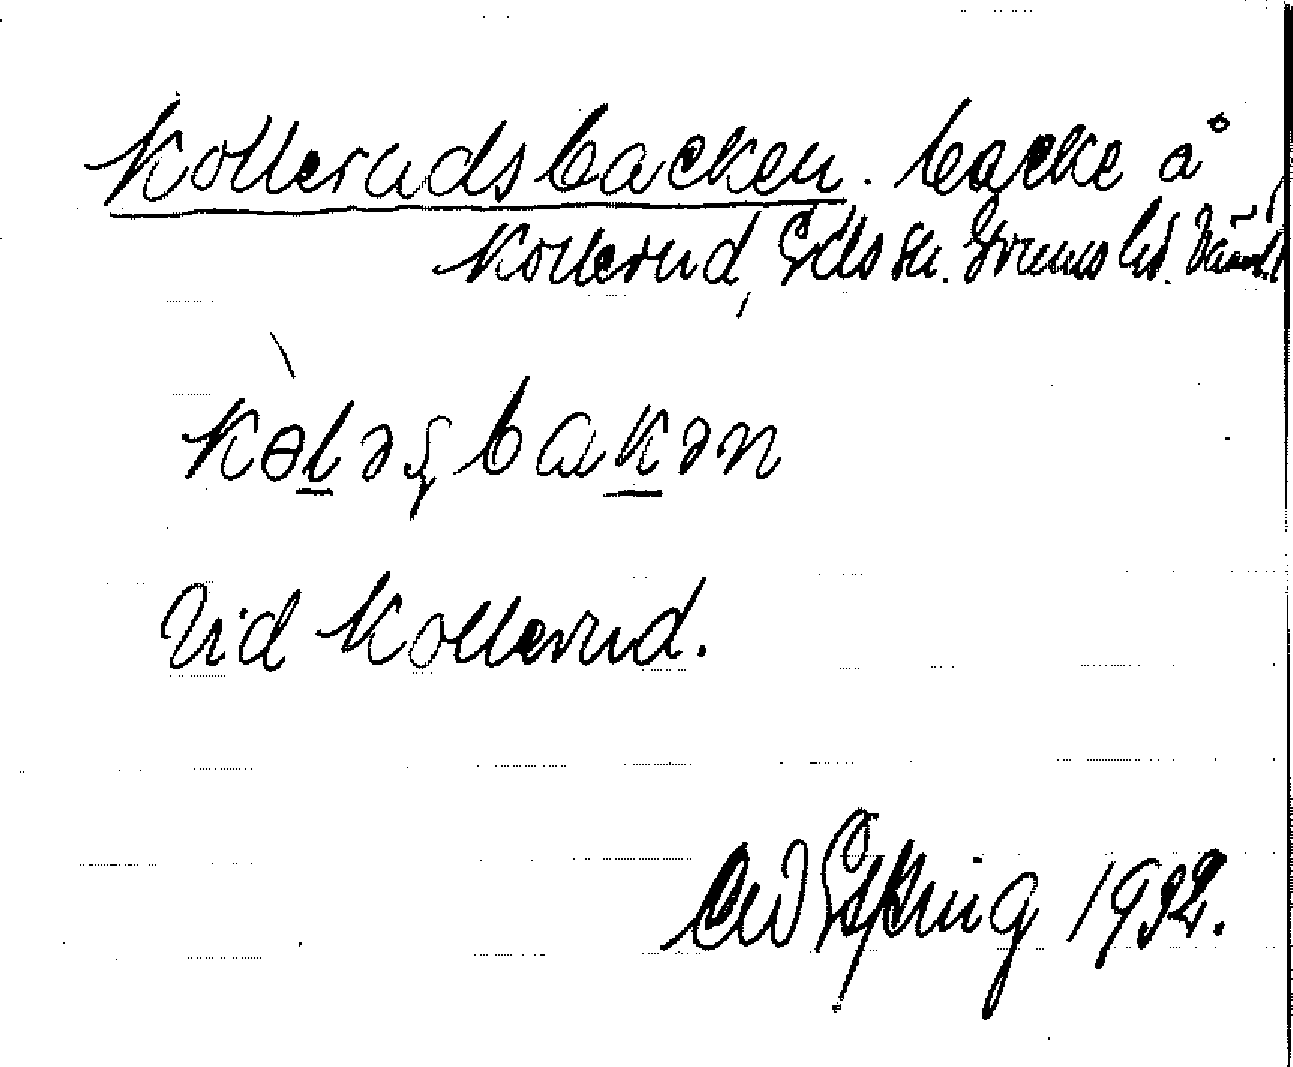 Kollerudsbacken. backe å
Kollerud, Eds sn. Grums hd. Värml.
kɵləʂbakən
Vid Kollerud.
1932.